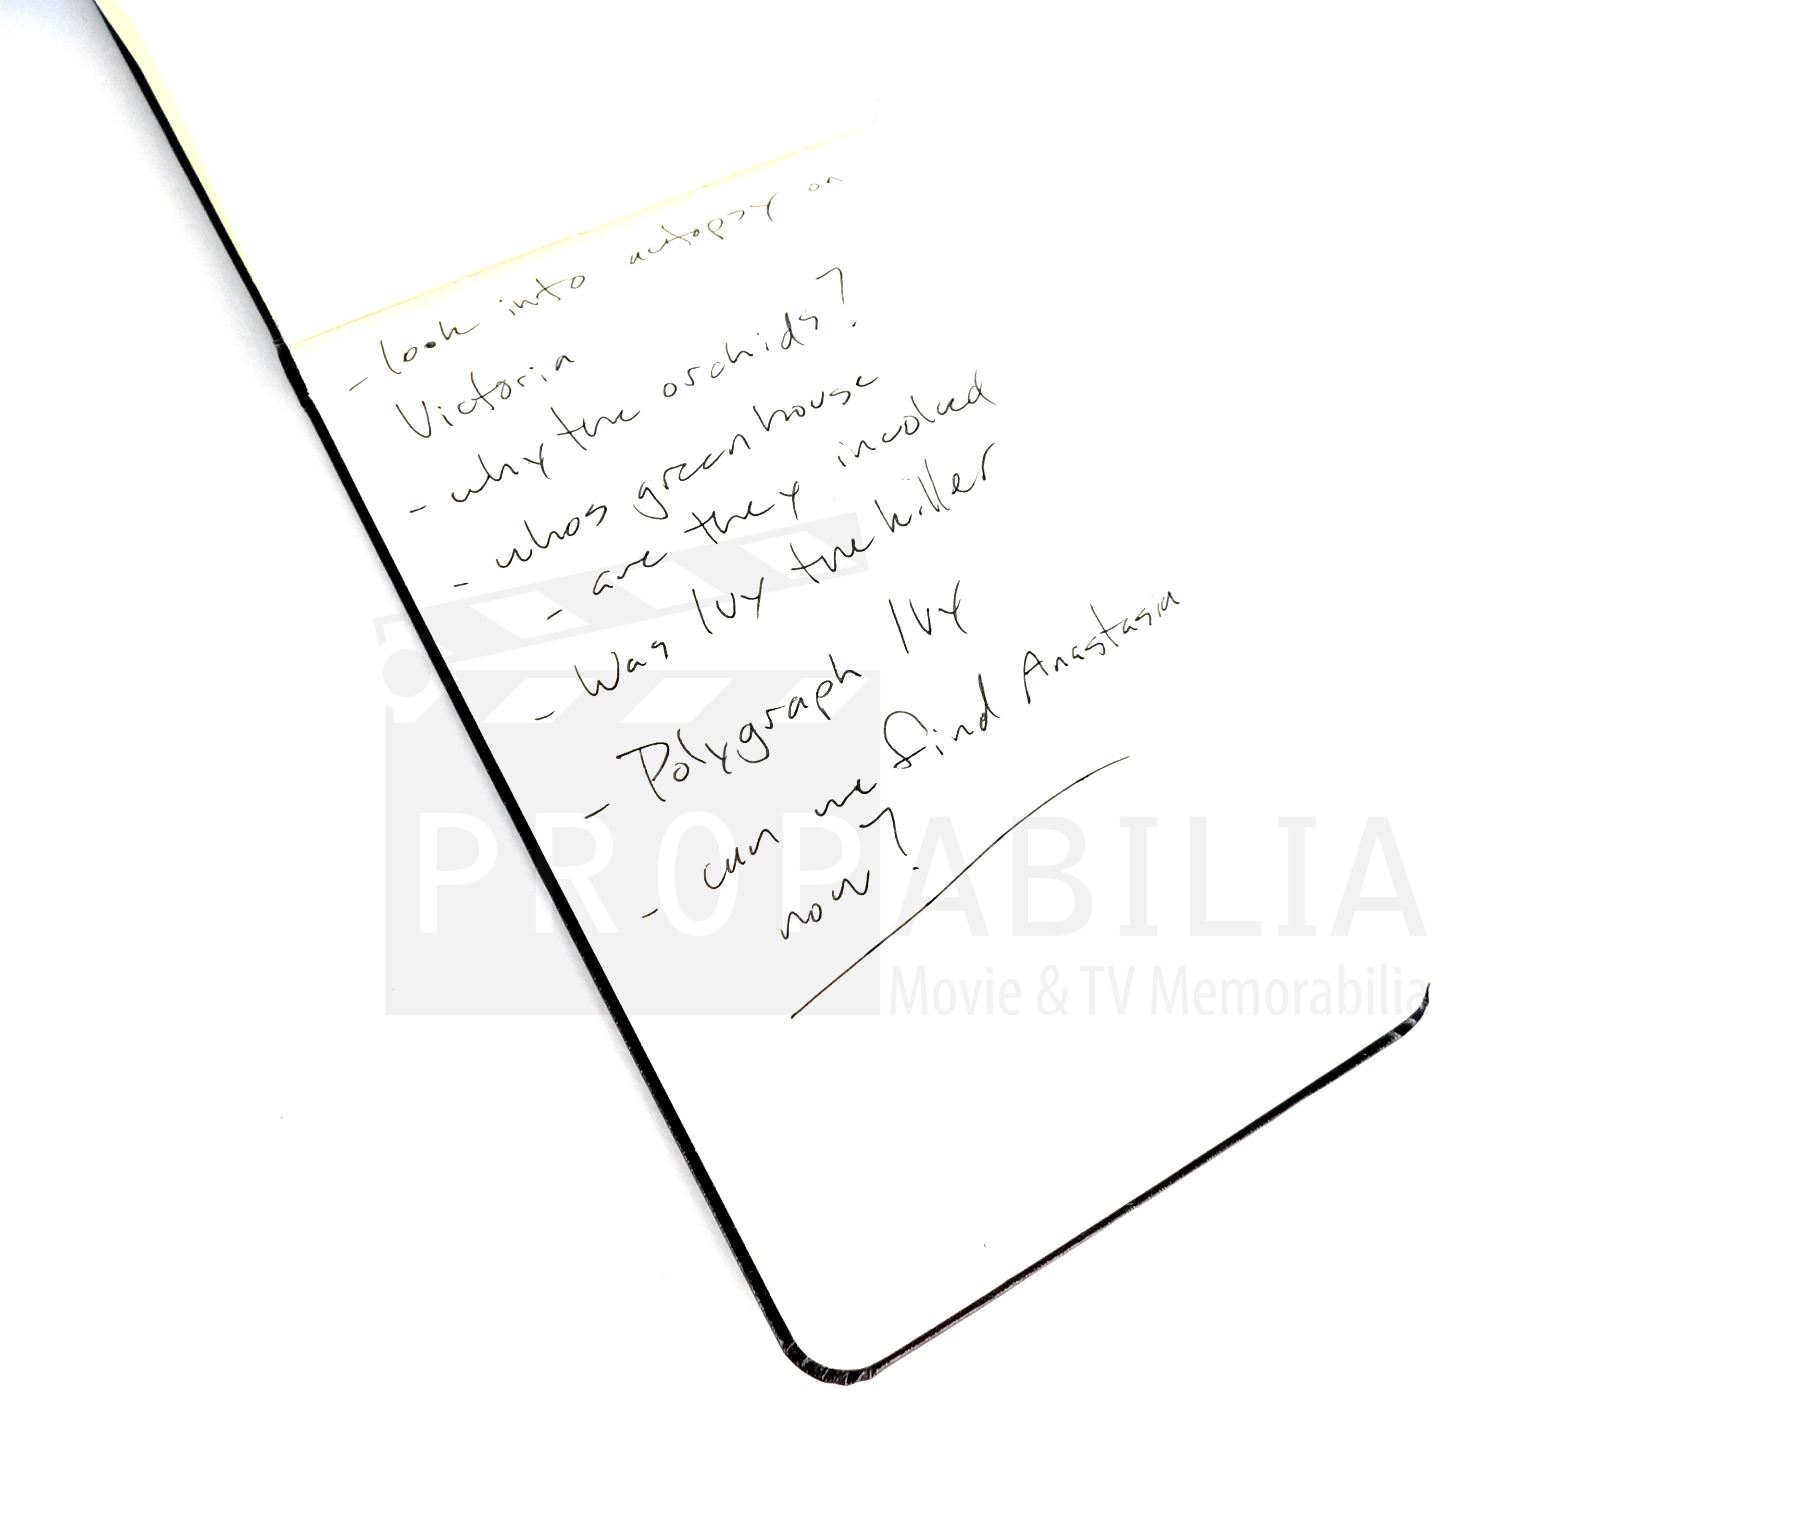 - look into autopsy on
Victoria
- why the orchids?
- whos greenhouse
- are they involved
- Was Ivy the killer
- Polygraph Ivy
- can we find Anastasia
now?
PROPABILIA
Movie & TV Memorabilia